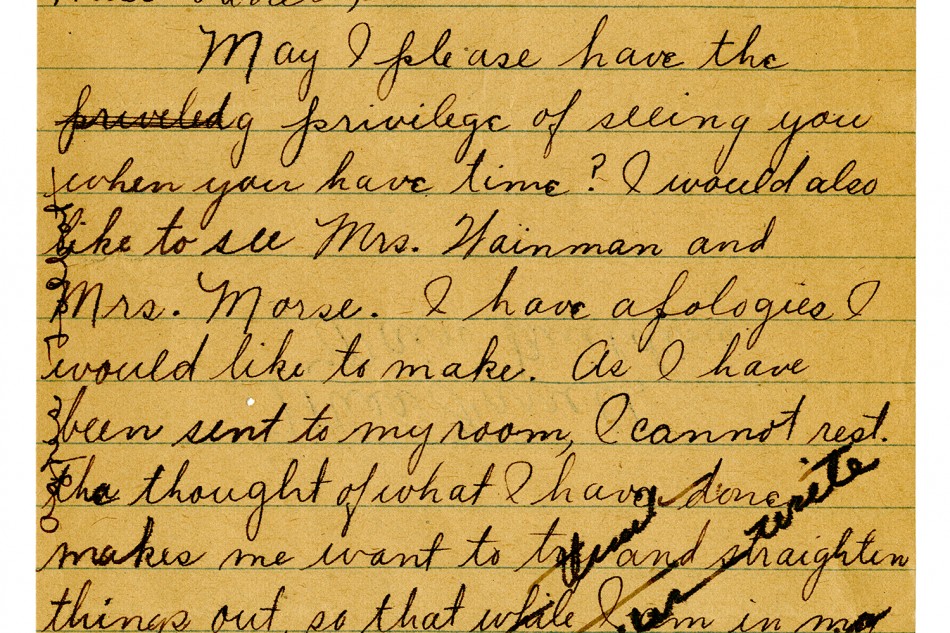 May I please have the
priviledg privilege of seeing you
when you have time? I would also
like to see Mrs. Wainman and
Mrs. Morse. I have apologies I
would like to make. As I have
been sent to my room, I cannot rest.
the thought of what I have done
makes me want to try and straighten
things out, so that while I am in my
write